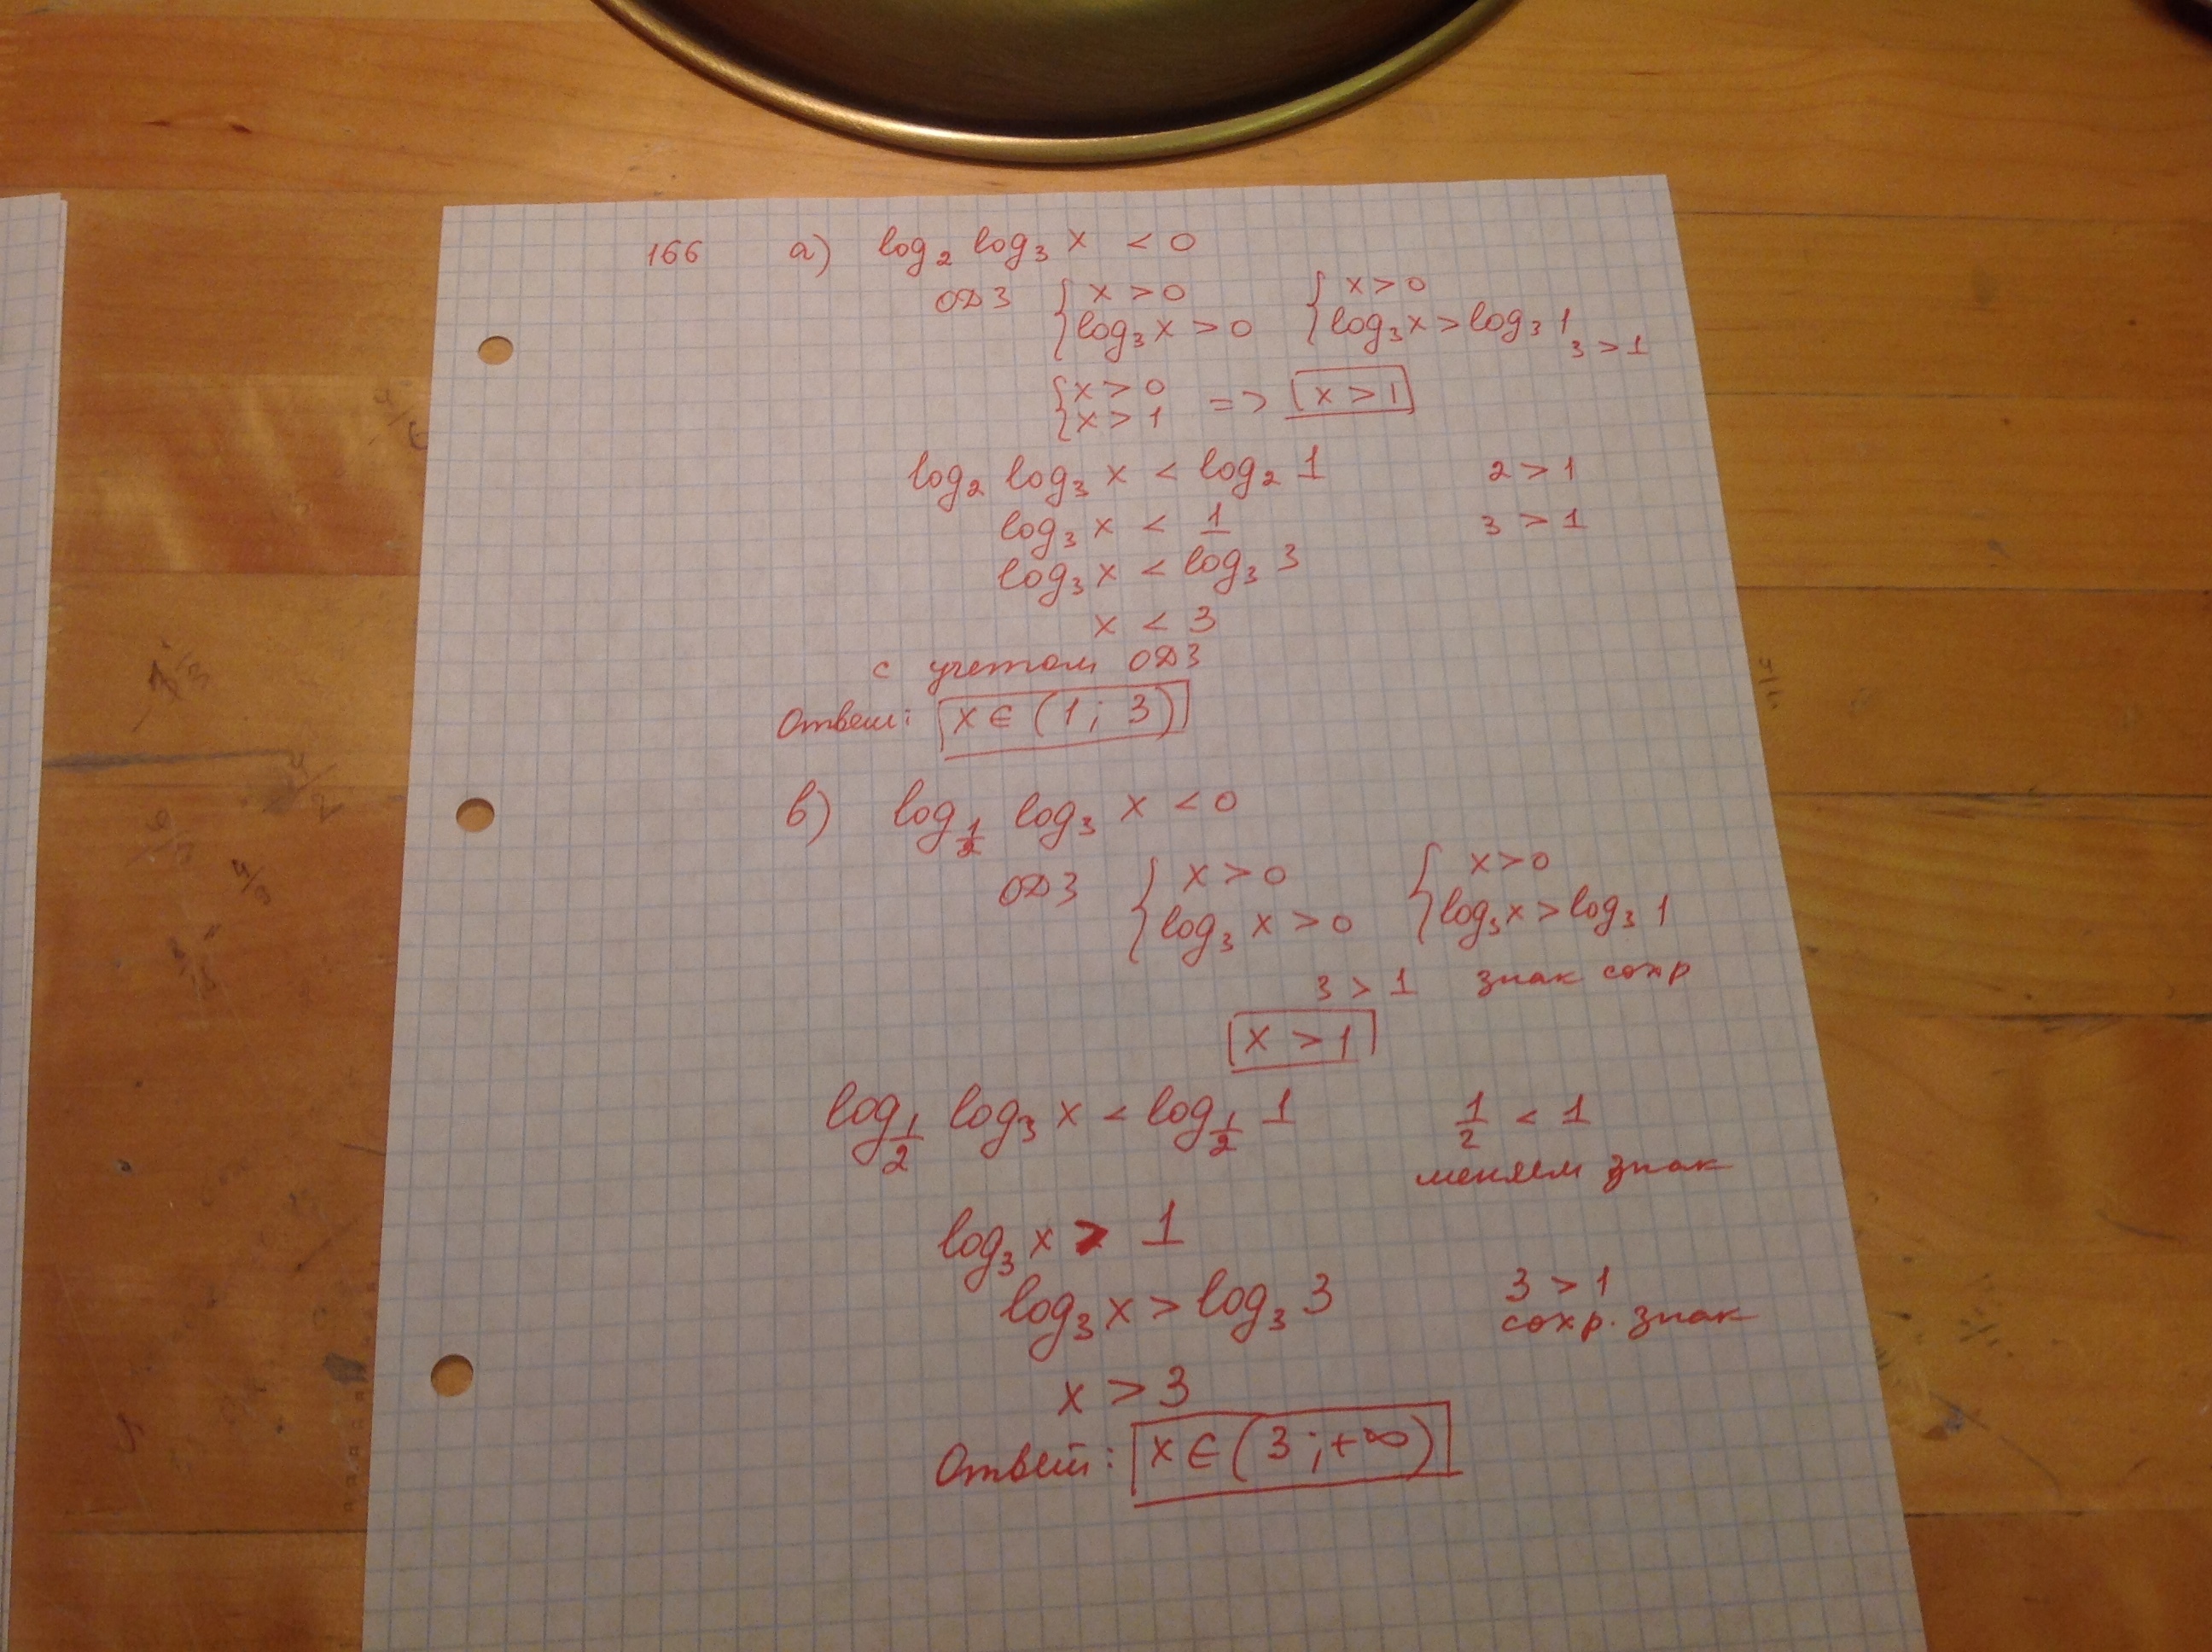 166 а) log₂ log₃ x < 0
ОДЗ { x > 0 { x > 0
log₃ x > 0 log₃ x > log₃ 1
3 > 1
{ x > 0
x > 1 => x > 1
log₂ log₃ x < log₂ 1 2 > 1
log₃ x < 1 3 > 1
log₃ x < log₃ 3
x < 3
с учетом ОДЗ
Ответ: x ∈ (1; 3)
в) log_{1/2} log₃ x < 0
ОДЗ { x > 0 { x > 0
log₃ x > 0 log₃ x > log₃ 1
3 > 1 знак сохр
x > 1
log_{1/2} log₃ x < log_{1/2} 1 1/2 < 1
меняем знак
log₃ x > 1
log₃ x > log₃ 3 3 > 1
сохр. знак
x > 3
Ответ: x ∈ (3; +∞)